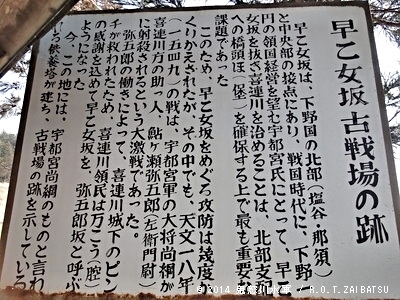 早乙女坂古戦場の跡
早乙女坂は、下野国の北部(塩谷・那須)
と中央部の接点にあり、戦国時代に、下野
円の領国経営を望む宇都宮氏にとって、早
女坂を抜き喜連川を治めることは、北部支
への橋頭ほ(保)を確保する上で最も重要
課題であった
このため、早乙女坂をめぐる攻防は幾度
くりかえされたが、その中でも、天文一八年
(一五四九)の戦は、宇都宮軍の大将尚綱が
喜連川方の助っ人、鮎ヶ瀬弥五郎(左衛門尉)
に射殺されるという大激戦であった。
弥五郎の働きによって、喜連川城下のピン
チが救われたため、喜連川領民は万こう(腔)
の感謝を込めて早乙女坂を、弥五郎坂と呼ぶ
ようになった
今、この地には、宇都宮尚綱のものと言わ
いる供養塔が建ち、古戦場の跡を示している
© 2014 / R.O.T.ZAIBATSU